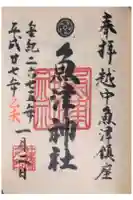 奉拝 越中魚津鎮座
魚津神社
皇紀二六七五年
平成廿七年乙未
一月二日